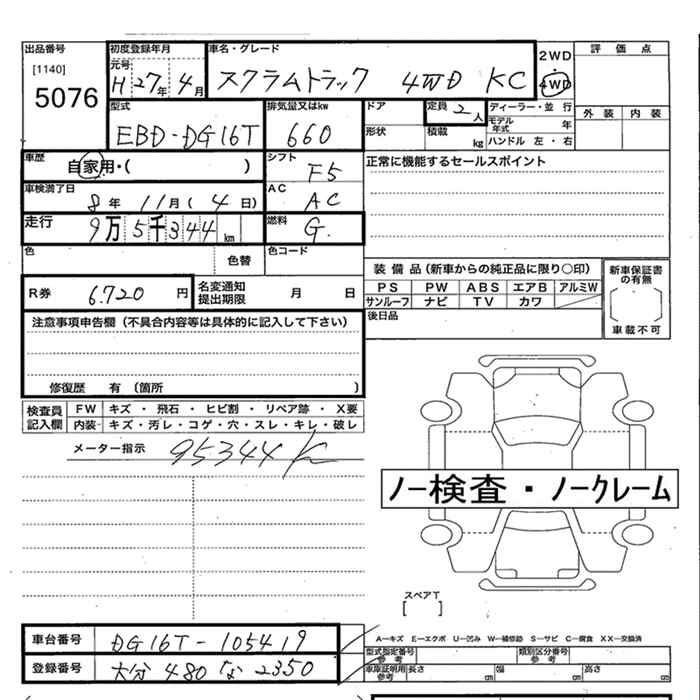 出品番号
[1140]
5076
初度登録年月
元号
H 27年 4月
車名・グレード
スクラムトラック 4WD KC
2WD
・
4WD
評価点
外装 内装
型式
EBD-DG16T
排気量又はkw
660
ドア
形状
定員
2人
積載
kg
ディーラー・並行
モデル年式
年
ハンドル 左・右
車歴
自家用・( )
シフト
F5
正常に機能するセールスポイント
車検満了日
8年 11月( 4日)
AC
AC
走行
9万5千344km
燃料
G.
色
色替
色コード
R券
6.720円
名変通知
提出期限
月 日
装備品(新車からの純正品に限り○印)
PS PW ABS エアB アルミW
サンルーフ ナビ TV カワ
新車保証書
の有無
車載不可
後日品
注意事項申告欄(不具合内容等は具体的に記入して下さい)
修復歴 有(箇所 )
検査員
記入欄
FW キズ・飛石・ヒビ割・リペア跡・X要
内装 キズ・汚レ・コゲ・穴・スレ・キレ・破レ
メーター指示
95344K
ノー検査・ノークレーム
スペアT
[ ]
車台番号
DG16T-105419
登録番号
大分 480 な 2350
A−キズ E−エクボ U−凹み W−補修跡 S−サビ C−腐食 XX−交換済
型式指定番号
参考
類別区分番号
参考
車庫証明用
参考
長さ cm 幅 cm 高さ cm